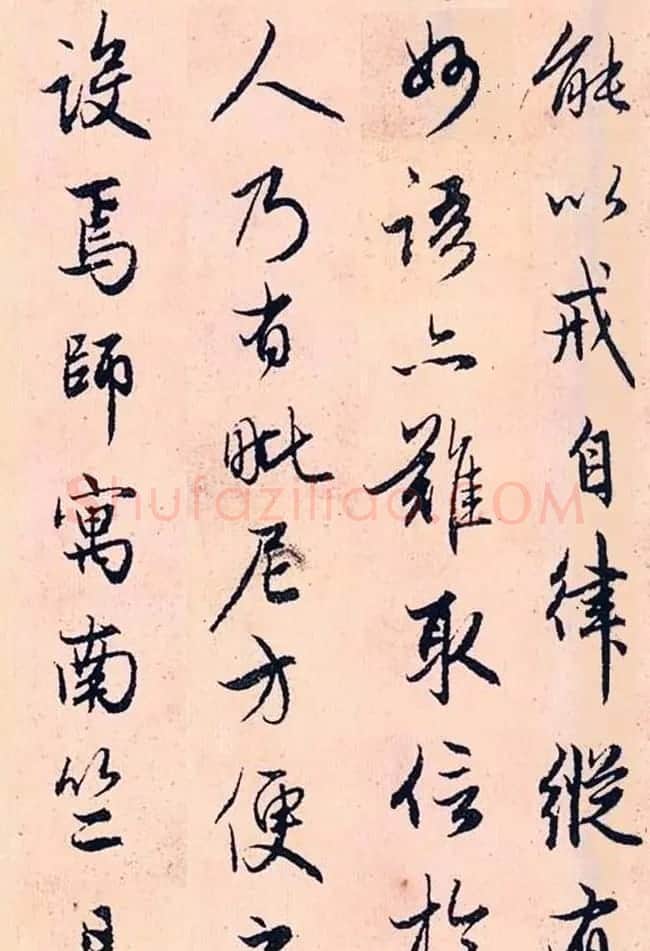 能以戒自律縱有
妙語亦難取信於
人乃有毗尼方便之
設焉師寓南竺
Shufaziliao.COM